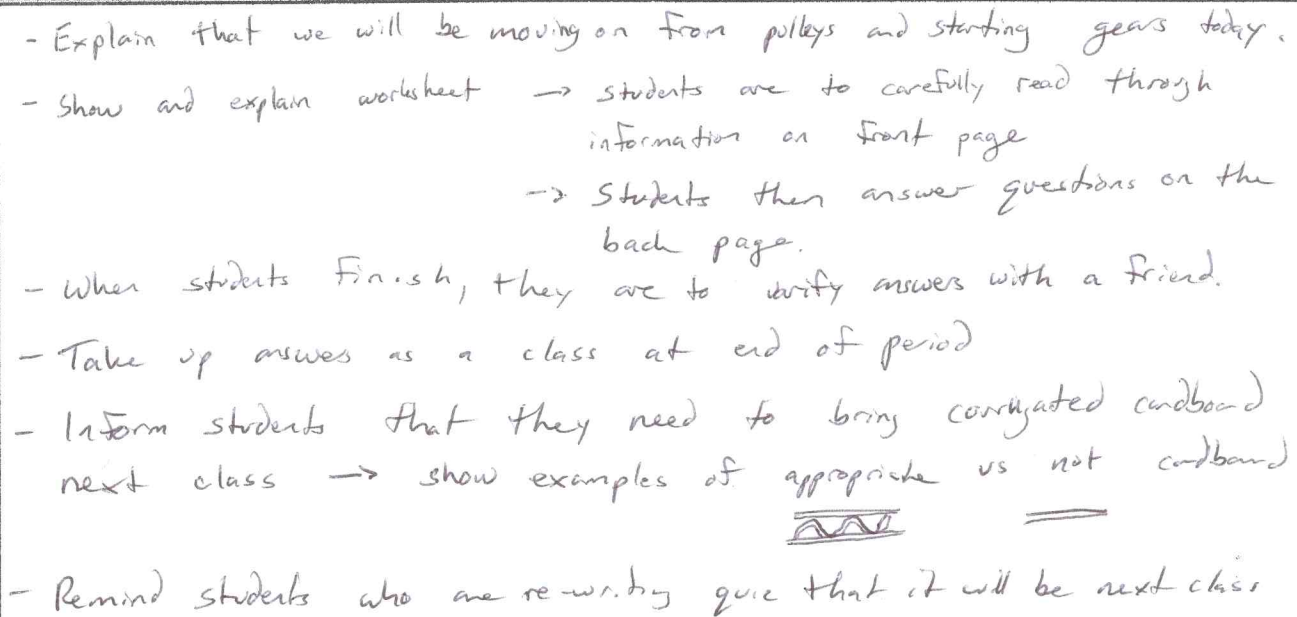 - Explain that we will be moving on from pulleys and starting gears today.
- Show and explain worksheet → students are to carefully read through
information on front page
→ Students then answer questions on the
back page.
- When students finish, they are to verify answers with a friend.
- Take up answes as a class at end of period
- Inform students that they need to bring corrugated cardboard
next class → show examples of appropriate vs not cardboard
- Remind students who are re-writing quie that it will be next class